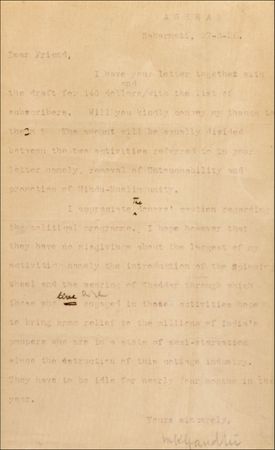 ASHRAM
Sabarmati,
Dear Friend,
I have your letter together with
and
the draft for 140 dollars/with the list of
subscribers. Will you kindly convey my thanks to
them? The amount will be equally divided
between the two activities referred to in your
letter namely, removal of Untouchability and
promotion of Hindu-Muslim unity.
the
I appreciate donors' caution regarding
the political programme. I hope however that
they have no misgivings about the largest of my
activities namely the introduction of the Spinning
Wheel and the wearing of Khaddar through which
those who are engaged in these activities hope
to bring some relief to the millions of India's
paupers who are in a state of semi-starvation
since the destruction of this cottage industry.
They have to be idle for nearly four months in the
year.
Yours sincerely,
MKGandhi